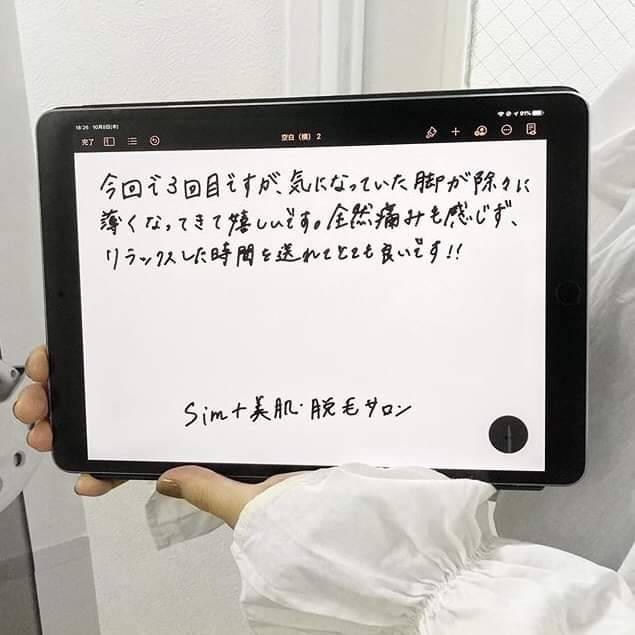 18:26 10月8日(木)
91%
完了
空白（横）2
今回で3回目ですが、気になっていた脚が除々に
薄くなってきて嬉しいです。全然痛みも感じず、
リラックスした時間を送れてとても良いです!!
Sim+美肌・脱毛サロン